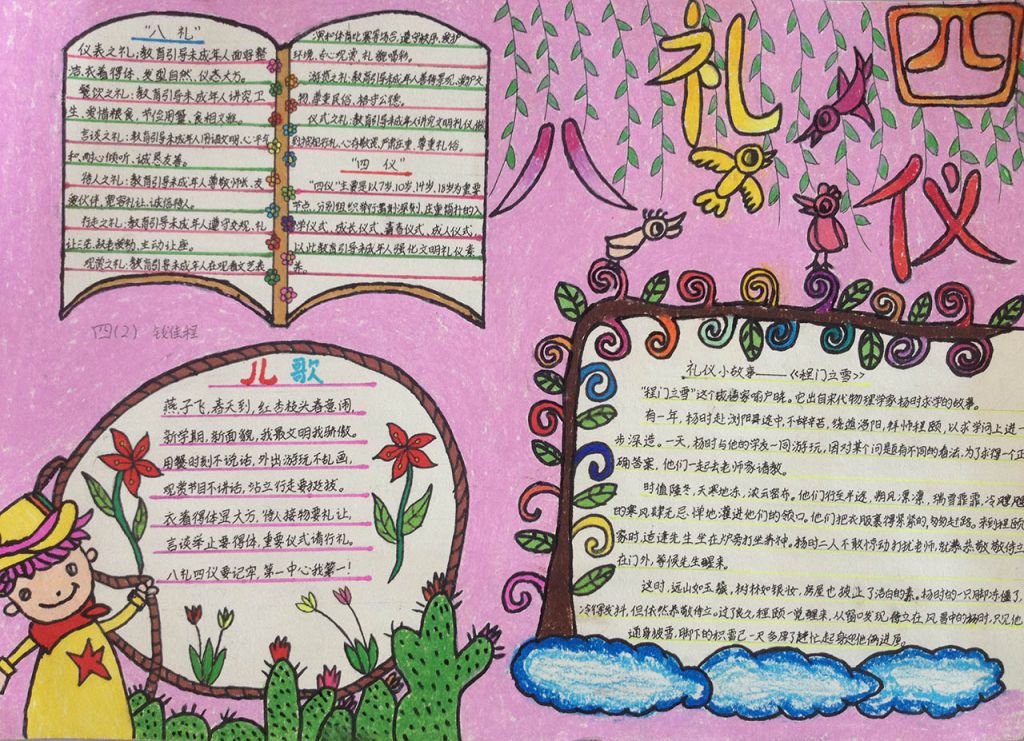 八礼四仪
“八 礼”
仪表之礼：教育引导未成年人面容整
洁，衣着得体，发型自然，仪态大方。
餐饮之礼：教育引导未成年人讲究卫
生，爱惜粮食，节俭用餐，食相文雅。
言谈之礼：教育引导未成年人用语文明，心平气
和，耐心倾听，诚恳友善。
待人之礼：教育引导未成年人尊敬师长，友
爱伙伴，宽容礼让，诚信待人。
行走之礼：教育引导未成年人遵守交规，礼
让三先，扶老携幼，主动让座。
观赏之礼：教育引导未成年人在观看文艺表
演和体育比赛等场合，遵守秩序，爱护
环境，专心观赏，礼貌喝彩。
游览之礼：教育引导未成年人善待景观，爱护文
物，尊重民俗，恪守公德。
仪式之礼：教育引导未成年人讲究文明礼仪，做
到按规行礼，心存敬畏，严肃庄重，尊重礼俗。
“四 仪”
“四仪”主要是以7岁，10岁，14岁，18岁为重要
节点，分别组织举行寓意深刻，庄重简朴的入
学仪式，成长仪式，青春仪式，成人仪式，
以此教育引导未成年人强化文明礼仪素
养。
四(2) 钱佳程
儿歌
燕子飞，春天到，红杏枝头春意闹。
新学期，新面貌，我最文明我骄傲。
用餐时刻不说话，外出游玩不乱画，
观赏节目不讲话，站立行走要挺拔。
衣着得体显大方，待人接物要礼让，
言谈举止要得体，重要仪式请行礼。
八礼四仪要记牢，第一中心我第一！
礼仪小故事——《程门立雪》
“程门立雪”这个成语家喻户晓。它出自宋代物理学家杨时求学的故事。
有一年，杨时赴浏阳县途中，不辞辛苦，绕道洛阳，拜师程颐，以求学问上进一
步深造。一天，杨时与他的学友一同游玩，因对某个问题有不同的看法，为了求得一个正
确答案，他们一起去老师家请教。
时值隆冬，天寒地冻，浓云密布。他们行至半途，朔风凛凛，瑞雪霏霏，冷飕飕
的寒风肆无忌惮地灌进他们的领口。他们把衣服裹得紧紧的，匆匆赶路。来到程颐
家时，适逢先生坐在炉旁打坐养神。杨时二人不敢惊动打扰老师，就恭恭敬敬侍立
在门外，等候先生醒来。
这时，远山如玉簇，树林如银妆，房屋也披上了洁白的素。杨时的一只脚冻僵了，
冷得发抖，但依然恭敬侍立。过了良久，程颐一觉醒来，从窗口发现侍立在风雪中的杨时，只见他
通身披雪，脚下的积雪已一尺多厚了，赶忙起身迎他俩进屋。